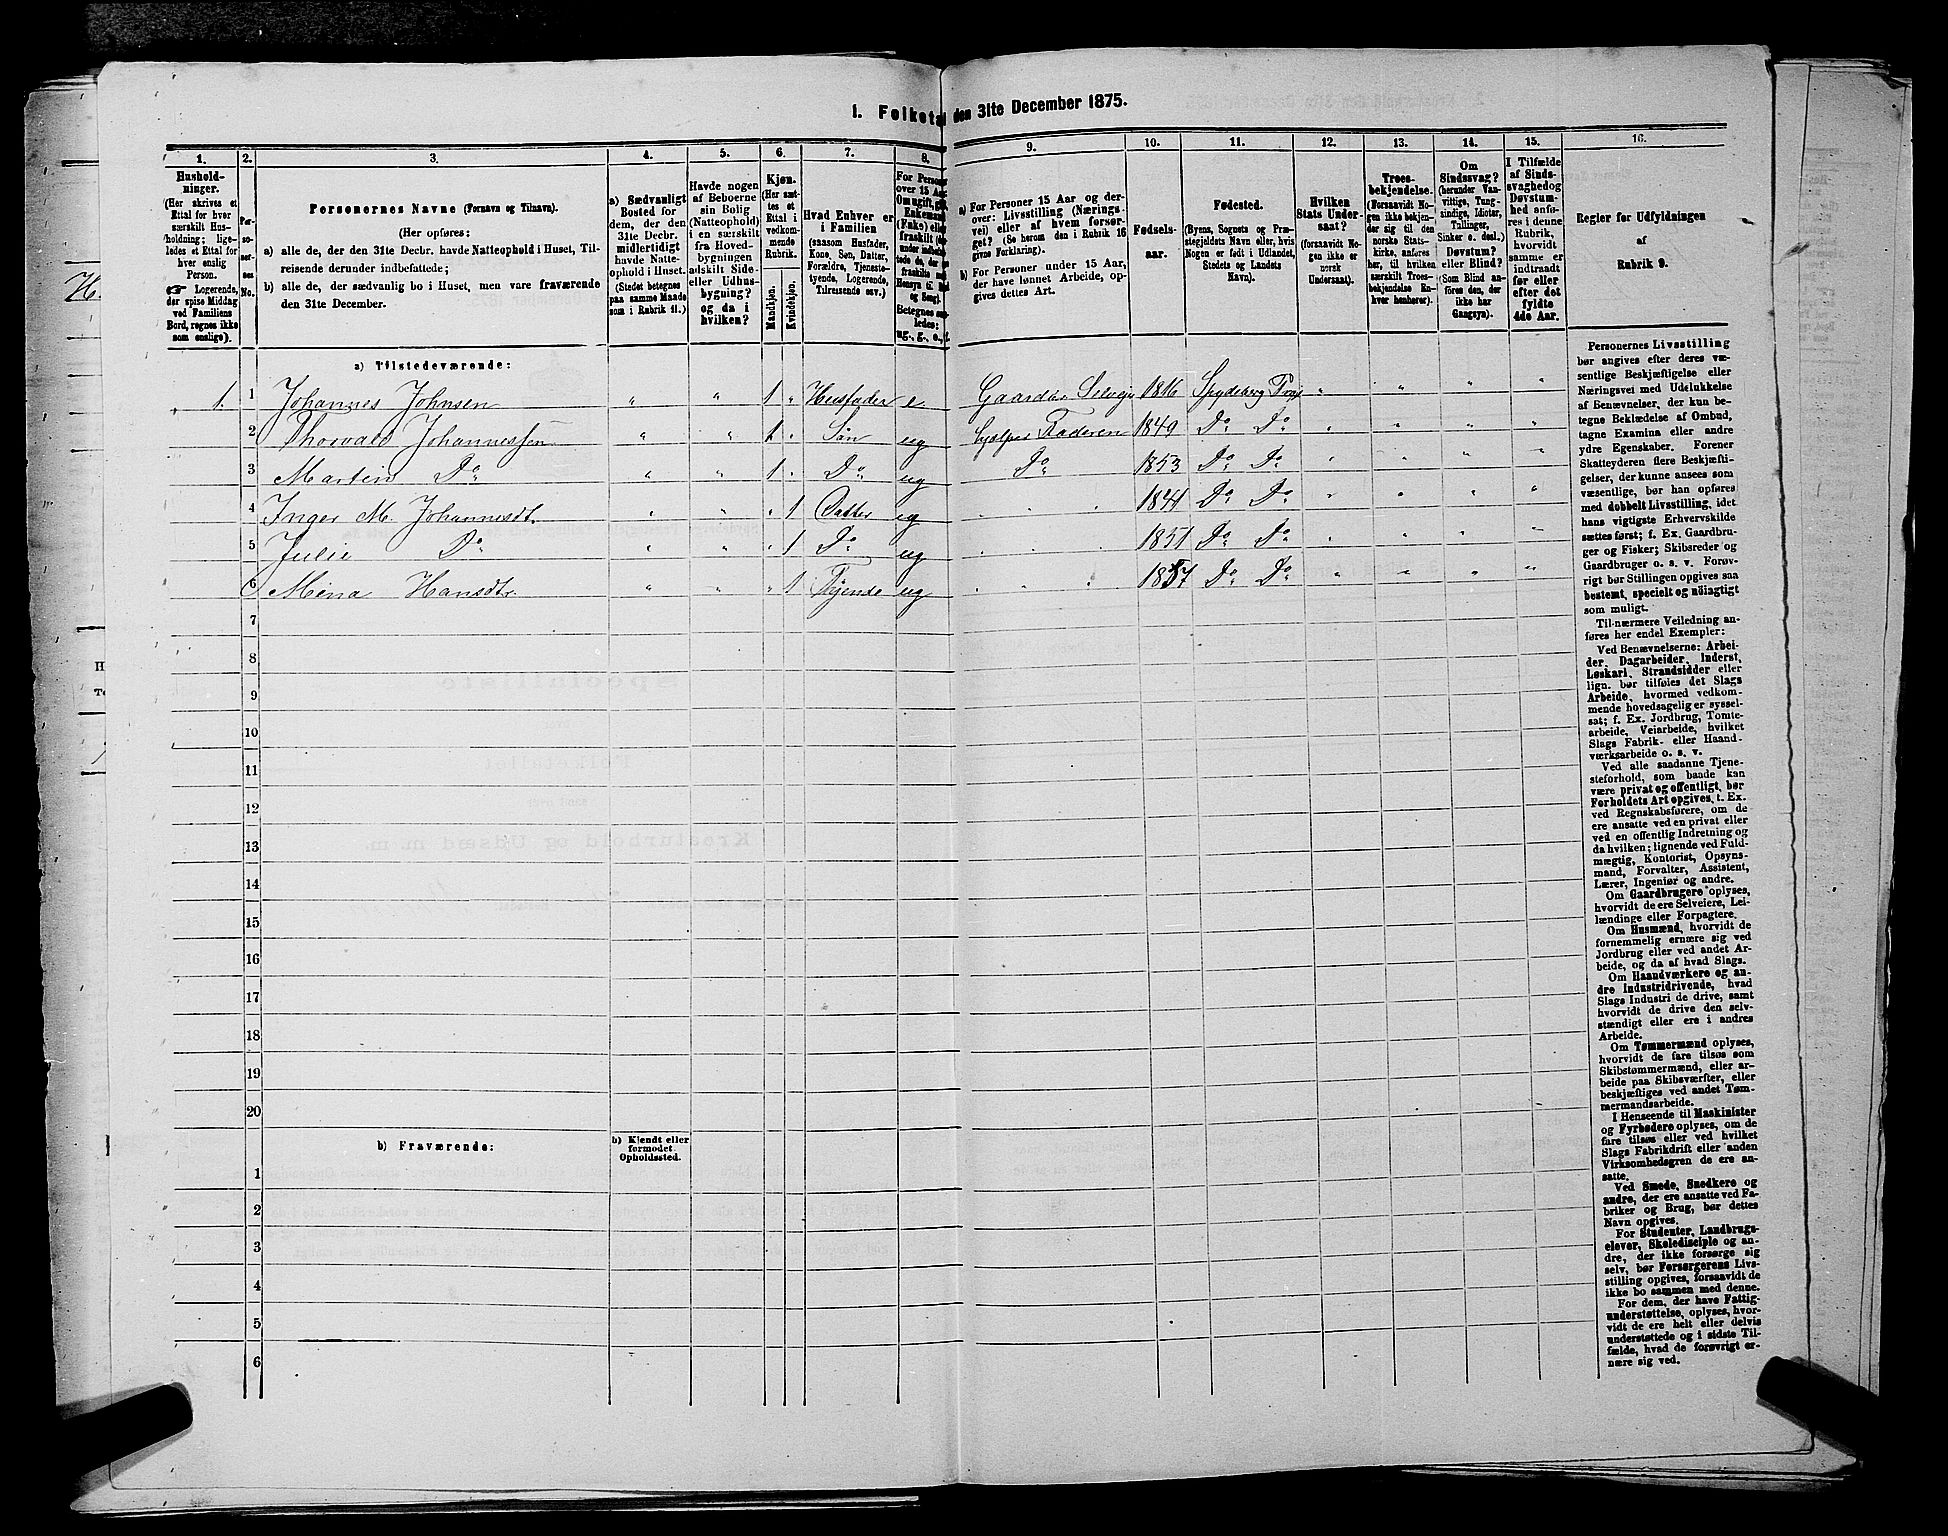 1. Folketal den 31te December 1875.
1.
2.
3.
4.
5.
6.
7.
8.
9.
10.
11.
12.
13.
14.
15.
16.
Husholdninger.
(Her skrives et
Ettal for hver
særskilt Husholdning;
ligeledes et Ettal for
hver enslig
Person.
☛ Logerende,
der spise Middag
ved Familiens
Bord, regnes ikke
som enslige).
Personernes No.
Personernes Navne (Fornavn og Tilnavn).
(Her opføres:
a) alle de, der den 31te Decbr. havde Natteophold i Huset, Tilreisende derunder indbefattede;
b) alle de, der sædvanlig bo i Huset, men vare fraværende
den 31te December.
a) Sædvanligt
Bosted for
dem, der den
31te Decbr.
midlertidigt
havde Natteophold i Huset.
(Stedet betegnes
paa samme Maade
som i Rubrik 11.)
Havde nogen
af Beboerne
sin Bolig
(Natteophold)
i en særskilt
fra Hovedbygningen
adskilt Side-
eller Udhusbygning?
og da i
hvilken?
Kjøn.
(Her sættes et
Ettal i
vedkommende
Rubrik.
Mandkjøn.
Kvindekjøn.
Hvad Enhver er
i Familien
(saasom Husfader,
Kone, Søn, Datter,
Forældre, Tjenestetyende, Logerende,
Tilreisende osv.)
a) For Personer 15 Aar og derover: Livsstilling (Næringsvei) eller af hvem forsørget? (Se herom den i Rubrik 16
givne Forklaring).
b) For Personer under 15 Aar,
der have lønnet Arbeide, opgives dettes Art.
Fødselsaar.
Fødested.
(Byens, Sognets og Præstegjeldets Navn eller, hvis
Nogen er født i Udlandet,
Stedets og Landets
Navn).
Hvilken
Stats Undersaat?
(forsaavidt Nogen ikke er
norsk
Undersaat).
Troesbekjendelse.
(Forsaavidt Nogen ikke bekjender sig til den
norske Statskirke, anføres
her, til hvilken
særskilt Troesbekjendelse Enhver henhører).
Om
Sindssvag?
(herunder Vanvittige, Tungsindige, Idioter,
Tullinger,
Sinker o. desl.)
Døvstum?
eller Blind?
(Som Blind anføres den, der
ikke har
Gangsyn).
I Tilfælde
af Sindssvaghed og
Døvstumhed anføres i denne
Rubrik,
hvorvidt
samme er
indtraadt
før eller
efter det
fyldte
4de Aar.
Regler for Udfyldningen
af
Rubrik 9.
a) Tilstedeværende:
1. 1 Johannes Johnsen " " 1 " Husfader e Gaardbr. Selveier 1816 Spydeberg Præ " " " "
2 Thorvald Johannessen " " 1 " Søn ug hjælper Faderen 1849 Do Do " " " "
3 Martin Do " " 1 " Do ug Do 1853 Do Do " " " "
4 Inger M. Johannesdt. " " " 1 Datter ug " " 1841 Do Do " " " "
5 Julie Do " " " 1 Do ug " " 1851 Do Do " " " "
6 Mina Hansdtr. " " " 1 Tjende ug " " 1857 Do Do " " " "
7
8
9
10
11
12
13
14
15
16
17
18
19
20
b) Fraværende:
b) Kjendt eller
formodet
Opholdssted.
1
2
3
4
5
6
Personernes Livsstilling
bør angives efter deres væsentlige Beskjæftigelse eller
Næringsvei med Udelukkelse
af Benævnelser, der kun betegne Beklædelse af Ombud,
tagne Examina eller andre
ydre Egenskaber. Forener
Skatteyderen flere Beskjæftigelser, der kunne ansees som
væsentlige, bør han opføres
med dobbelt Livsstilling, idet
hans vigtigste Erhvervskilde
sættes først; f. Ex. Gaardbruger og Fisker; Skibsreder og
Gaardbruger o. s. v. Forøvrigt bør Stillingen opgives saa
bestemt, specielt og nøiagtigt
som muligt.
Til nærmere Veiledning anføres her endel Exempler:
Ved Benævnelserne: Arbeider, Dagarbeider, Inderst,
Løskarl, Strandsidder eller
lign. bør tilføies det Slags
Arbeide, hvormed vedkommende hovedsagelig er sysselsat; f. Ex. Jordbrug, Tomtearbeide, Veiarbeide, hvilket
Slags Fabrik- eller Haandværksarbeide o. s. v.
Ved alle saadanne Tjenesteforhold, som baade kan
være privat og offentligt, bør
Forholdets Art opgives, t. Ex.
ved Regnskabsførere, om de
ere ansatte ved en privat eller
ved en offentlig Indretning og
da hvilken; lignende ved Fuldmægtig, Kontorist, Opsynsmand, Forvalter, Assistent,
Lærer, Ingeniør og andre.
Om Gaardbrugere oplyses,
hvorvidt de ere Selveiere, Leilændinge eller Forpagtere.
Om Husmænd, hvorvidt de
fornemmelig ernære sig ved
Jordbrug eller ved andet Arbeide, og da af hvad Slags.
Om Haandværkere og andre Industridrivende, hvad
Slags Industri de drive, samt
hvorvidt de drive den selvstændigt eller ere i andres
Arbeide.
Om Tømmermænd oplyses,
hvorvidt de fare tilsøs som
Skibstømmermænd, eller arbeide paa Skibsværfter, eller
beskjæftiges ved andet Tømmermandsarbeide.
I Henseende til Maskinister
og Fyrbødere oplyses, om de
fare tilsøs eller ved hvilket
Slags Fabrikdrift eller anden
Virksomhedsgren de ere ansatte.
Ved Smede, Snedkere og
andre, der ere ansatte ved Fabriker og Brug, bør dettes
Navn opgives.
For Studenter, Landbrugselever, Skoledisciple og andre, der ikke forsørge sig
selv, bør Forsørgerens Livsstilling opgives, forsaavidt de
ikke bo sammen med denne.
For dem, der have Fattigunderstøttelse, oplyses, hvorvidt de ere helt eller delvis
understøttede og i sidste Tilfælde, hvad de forøvrigt ernære sig ved.